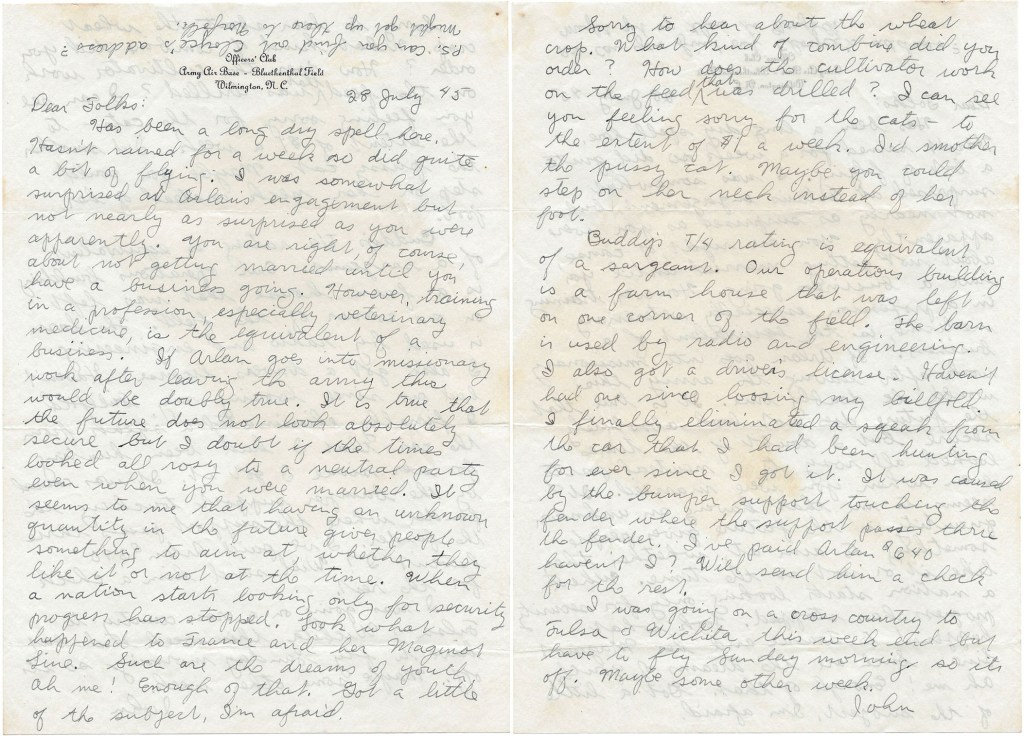 P.S. Can you find out Clayre's address?
Might get up there to Norfolk.
Officers' Club
Army Air Base - Bluethenthal Field
Wilmington, N. C.
28 July 45
Dear Folks:
Has been a long dry spell here.
Hasn't rained for a week so did quite
a bit of flying. I was somewhat
surprised at Arlan's engagement but
not nearly as surprised as you were
apparently. You are right, of course,
about not getting married until you
have a business going. However, training
in a profession, especially veterinary
medicine, is the equivalent of a
business. If Arlan goes into missionary
work after leaving the army this
would be doubly true. It is true that
the future does not look absolutely
secure but I doubt if the times
looked all rosy to a neutral party
even when you were married. It
seems to me that having an unknown
quantity in the future gives people
something to aim at, whether they
like it or not at the time. When
a nation starts looking only for security
progress has stopped. Look what
happened to France and her Maginot
Line. Such are the dreams of youth
ah me! Enough of that. Got a little
of the subject, I'm afraid.
Sorry to hear about the wheat
crop. What kind of combine did you
order? How does the cultivator work
on the feed that was drilled? I can see
you feeling sorry for the cats - to
the extent of $1 a week. I'd smother
the pussy cat. Maybe you could
step on her neck instead of her
foot.
Buddy's T/4 rating is equivalent
of a sargeant. Our operations building
is a farm house that was left
on one corner of the field. The barn
is used by radio and engineering.
I also got a driver's license. Haven't
had one since loosing my billfold.
I finally eliminated a squeak from
the car that I had been hunting
for ever since I got it. It was caused
by the bumper support touching the
fender where the support passes thrie
the fender. I've paid Arlan $640
haven't I? Will send him a check
for the rest.
I was going on a cross country to
Tulsa & Wichita this week end but
have to fly Sunday morning so its
off. Maybe some other week.
John